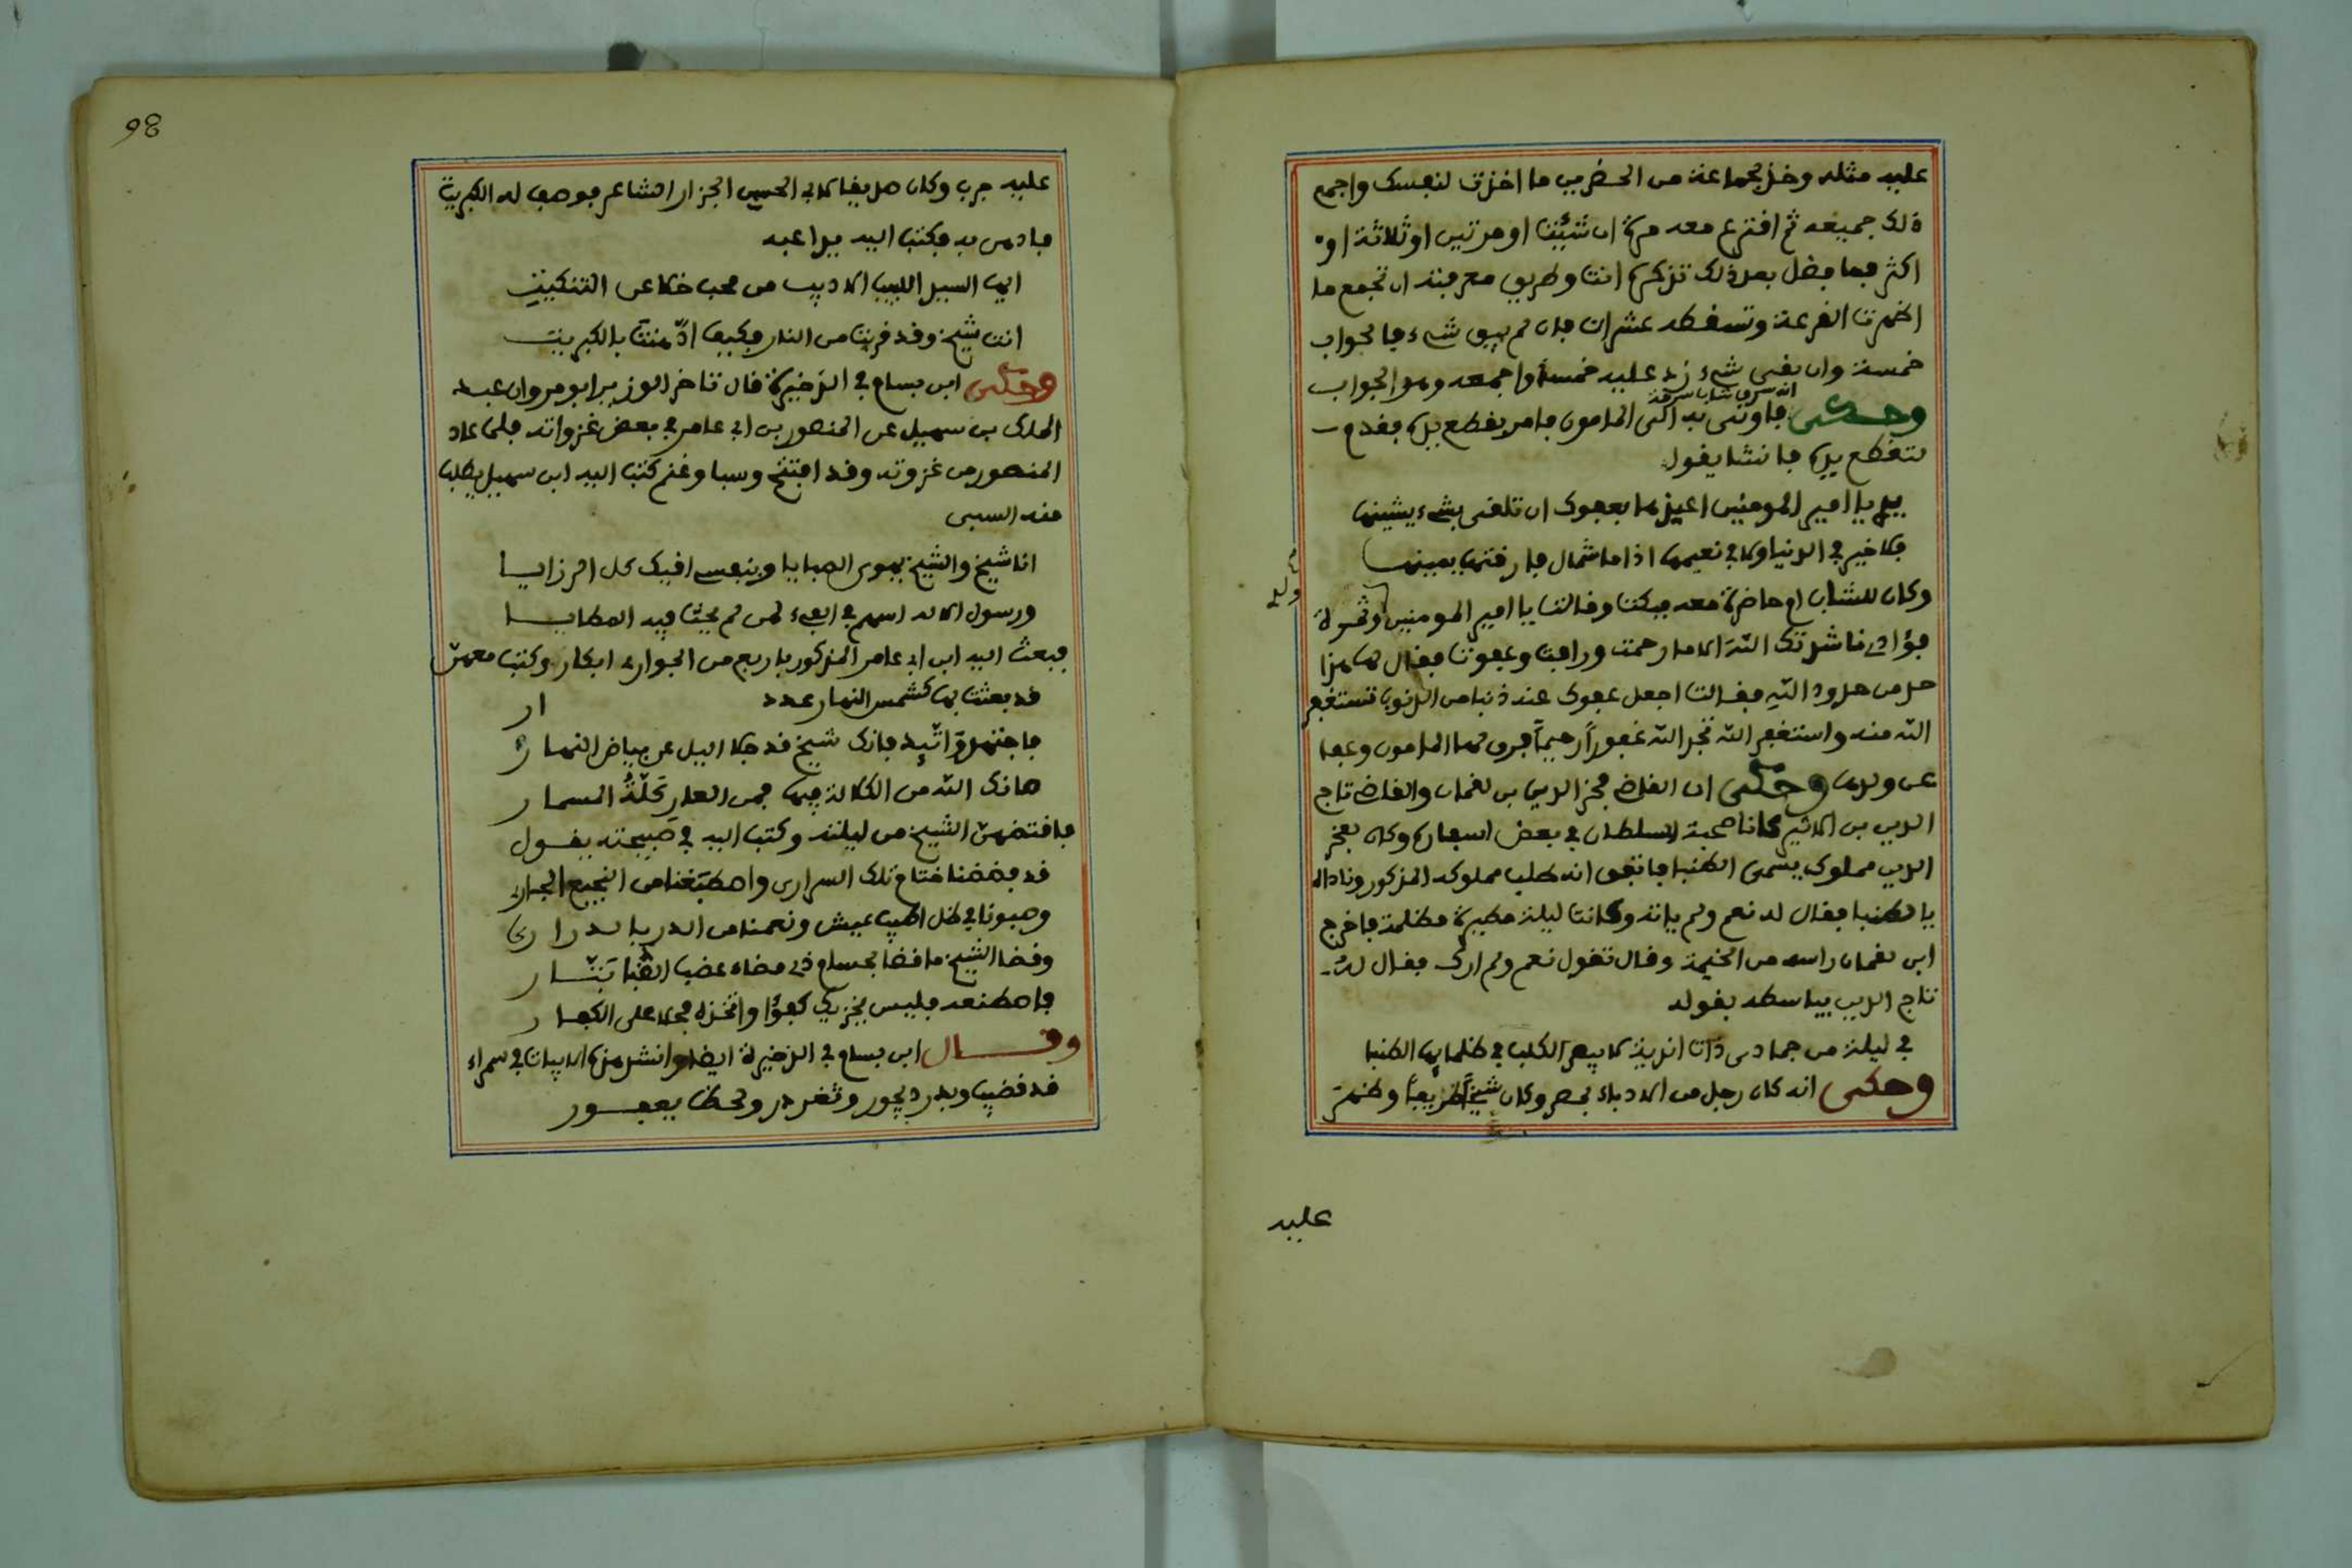 عليه مثله وخذ لجماعة من الحضر من ما اخذت لنفسك واجمع
ذلك جميعه ثم افترع معه مرة ان شئت او مرتين او ثلاثة او
اكثر فما فضل بعد ذلك تذكره انت وطريق معرفته ان تجمع ما
اضمرت الفرعة وتسقطه عشرات فان لم يبق شيء فالجواب
خمسة وان بقى شيء زد عليه خمسة واجمعه وهو الجواب
انه سرق شاب سرقة
وحكى فاوتى به الى المامون فامر بقطع يده فقدم
لتقطع يده فانشا يقول
يدي يا امير المومنين اعيذها بعفوك ان تلقى بشيء يشينها
فلا خير في الدنيا ولا في نعيمها اذا ما شمال فارقتها يمينها
وكان للشاب ام حاضرة معه فبكت وقالت يا امير المومنين وثمرة
فؤادي ناشدتك الله الا ما رحمت ورافت وعفوت فقال لها هذا
حد من حدود الله فقالت اجعل عفوك عنه ذنبا من الذنوب تستغفر
الله منه واستغفر الله تجد الله غفوراً رحيماً فرق لها المامون وعفا
عن ولدها وحكى ان القاضي فخر الدين بن لقمان والقاضي تاج
الدين بن الاثير كانا صحبة السلطان في بعض اسفاره وكان بفخر
الدين مملوك يسمى الطنبا فاتفق انه طلب مملوكه المذكور وناداه
يا الطنبا فقال له نعم ولم ياته وكانت ليلة مطيرة مظلمة فاخرج
ابن لقمان راسه من الخيمة وقال تقول نعم ولم ارك فقال له
تاج الدين بياسطه بقوله
في ليلة من جمادى ذات اندية لا يبصر الكلب في ظلمايها الطنبا
وحكى انه كان رجل من الادباء بمصر وكان شيخاً ظريفاً وظهر
عليه
98
عليه جرب وكان صديقا لابي الحسين الجزار الشاعر فوصف له الكبريت
فادهن به فكتب اليه يداعبه
ايها السيد اللبيب الاديب من محب خلا عن التنكيت
انت شيخ وقد قربت من النار فكيف ادّهنتَ بالكبريت
وحكى ابن بسام في الذخيرة قال تاخر الوزير ابو مروان عبد
الملك بن سهيل عن المنصور بن ابي عامر في بعض غزواته فلما عاد
المنصور من غزوته وقد افتتح وسبا وغنم كتب اليه ابن سهيل يطلب
منه السبى
انا شيخ والشيخ يهوى الصبايا وبنفسي اقيك كل الرزايا
ورسول الاله اسهم في الفيء لمن لم يخب فيه المطايا
فبعث اليه ابن ابي عامر المذكور باربع من الجوار ابكار وكتب معهن
قد بعثنا بها كشمس النهار عدد ار
فاجتهد واتّيد فانك شيخ قد جلا اليل عن بياض النهار
صانك الله من الكلالة فيها فمن العار كَلّةُ المسمار
فافتضهن الشيخ من ليلته وكتب اليه في صبيحته يقول
قد فضضنا ختام تلك السرارى واصطبغنا من النجيع الجارى
وصبونا في ظل اطيب عيش ونعمنا من الدر بالدرارى
وقضا الشيخ ما قضا بحسام ذى مضاء عضب الظّبا بتّار
فاصطنعه فليس يجزيك كفؤا واتخذه فحلا على الكفار
وقال ابن بسام في الذخيرة ايضا وانشد هذه الابيات في سمراء
قد قضيب وبدر ديجور وثغر در ولحظ يعفور